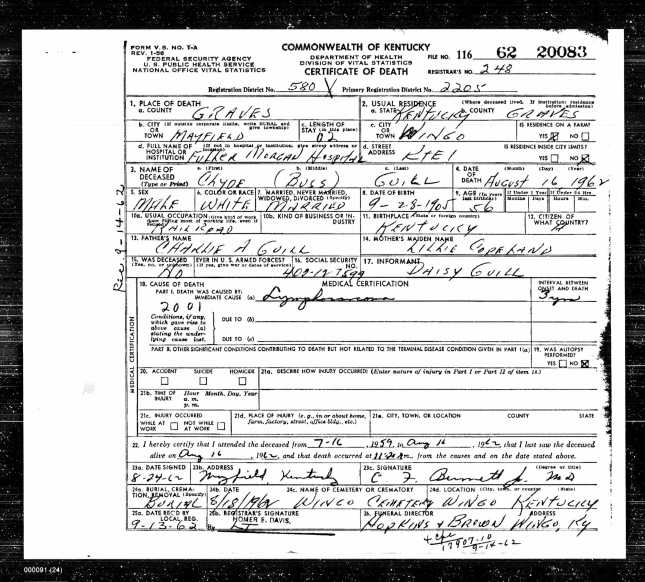 FORM V.S. NO. 1-A
REV. 1-56
FEDERAL SECURITY AGENCY
U. S. PUBLIC HEALTH SERVICE
NATIONAL OFFICE VITAL STATISTICS
COMMONWEALTH OF KENTUCKY
DEPARTMENT OF HEALTH
DIVISION OF VITAL STATISTICS
CERTIFICATE OF DEATH
FILE NO. 116 62 20083
REGISTRAR'S NO. 248
Registration District No. 580 Primary Registration District No. 2205
1. PLACE OF DEATH
a. COUNTY GRAVES
2. USUAL RESIDENCE (Where deceased lived. If institution: residence before admission)
a. STATE KENTUCKY b. COUNTY GRAVES
b. CITY (If outside corporate limits, write RURAL and give township) OR TOWN MAYFIELD
c. LENGTH OF STAY (in this place) 02
c. CITY OR TOWN WINGO
IS RESIDENCE ON A FARM?
YES NO
d. FULL NAME OF HOSPITAL OR INSTITUTION (If not in hospital or institution, give street address or location) FULLER MORGAN HOSPITAL
d. STREET ADDRESS RTE 1
IS RESIDENCE INSIDE CITY LIMITS?
YES NO
3. NAME OF DECEASED (Type or Print)
a. (First) CLYDE b. (Middle) (BUSS) c. (Last) GUILL
4. DATE OF DEATH (Month) (Day) (Year) AUGUST 16 1962
5. SEX MALE
6. COLOR OR RACE WHITE
7. MARRIED, NEVER MARRIED, WIDOWED, DIVORCED (Specify) MARRIED
8. DATE OF BIRTH 9-28-1905
9. AGE (In years last birthday) 56
If Under 1 Year Months Days If Under 24 Hrs. Hours Min.
10a. USUAL OCCUPATION (Give kind of work done during most of working life, even if retired) RAILROAD
10b. KIND OF BUSINESS OR INDUSTRY
11. BIRTHPLACE (State or foreign country) KENTUCKY
12. CITIZEN OF WHAT COUNTRY?
13. FATHER'S NAME CHARLIE A GUILL
14. MOTHER'S MAIDEN NAME COPELAND
15. WAS DECEASED EVER IN U. S. ARMED FORCES? (Yes, no, or unknown) (If yes, give war or dates of service) NO
16. SOCIAL SECURITY NO.
17. INFORMANT DAISY GUILL
18. CAUSE OF DEATH MEDICAL CERTIFICATION INTERVAL BETWEEN ONSET AND DEATH
PART I. DEATH WAS CAUSED BY:
IMMEDIATE CAUSE (a) Lymphosarcoma 3 yrs
2001
Conditions, if any, which gave rise to above cause (a) stating the underlying cause last.
DUE TO (b)
DUE TO (c)
PART II. OTHER SIGNIFICANT CONDITIONS CONTRIBUTING TO DEATH BUT NOT RELATED TO THE TERMINAL DISEASE CONDITION GIVEN IN PART I(a)
19. WAS AUTOPSY PERFORMED?
YES NO
MEDICAL CERTIFICATION
20. ACCIDENT SUICIDE HOMICIDE
21a. DESCRIBE HOW INJURY OCCURRED? (Enter nature of injury in Part I or Part II of item 18.)
21b. TIME OF INJURY Hour Month, Day, Year
a. m.
p. m.
21c. INJURY OCCURRED
WHILE AT WORK NOT WHILE AT WORK
21d. PLACE OF INJURY (e. g., in or about home, farm, factory, street, office bldg., etc.)
21e. CITY, TOWN, OR LOCATION COUNTY STATE
22. I hereby certify that I attended the deceased from 7-16, 1959, to Aug 16, 1962, that I last saw the deceased
alive on Aug 16, 1962, and that death occurred at m., from the causes and on the date stated above.
23a. DATE SIGNED 8-24-62
23b. ADDRESS Mayfield, Kentucky
23c. SIGNATURE (Degree or title) C F Burnett Jr. MD
24a. BURIAL, CREMATION, REMOVAL (Specify) BURIAL
24b. DATE 8/18/1962
24c. NAME OF CEMETERY OR CREMATORY WINGO CEMETERY
24d. LOCATION (City, town, or county) (State) WINGO KENTUCKY
25a. DATE REC'D BY LOCAL REG. 9-13-62
25b. REGISTRAR'S SIGNATURE
HOMER E. DAVIS,
By
26. FUNERAL DIRECTOR ADDRESS
HOPKINS & BROWN WINGO, KY
9-14-62
Rec 9-14-62
000091 (24)